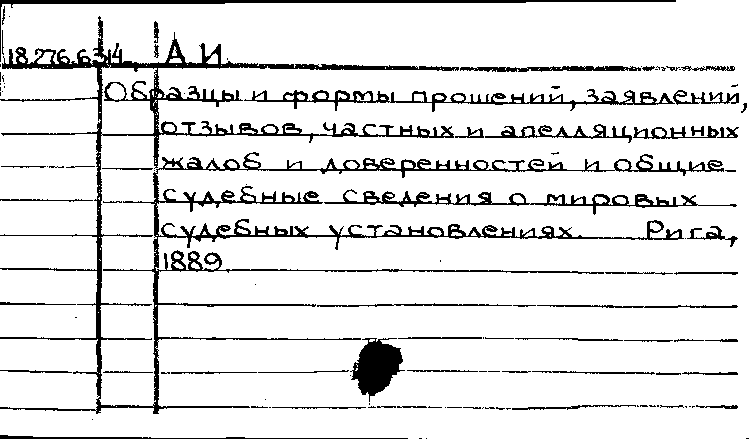 18.276.6.314. А. И.
Образцы и формы прошений, заявлений,
отзывов, частных и апелляционных
жалоб и доверенностей и общие
судебные сведения о мировых
судебных установлениях. Рига,
1889.